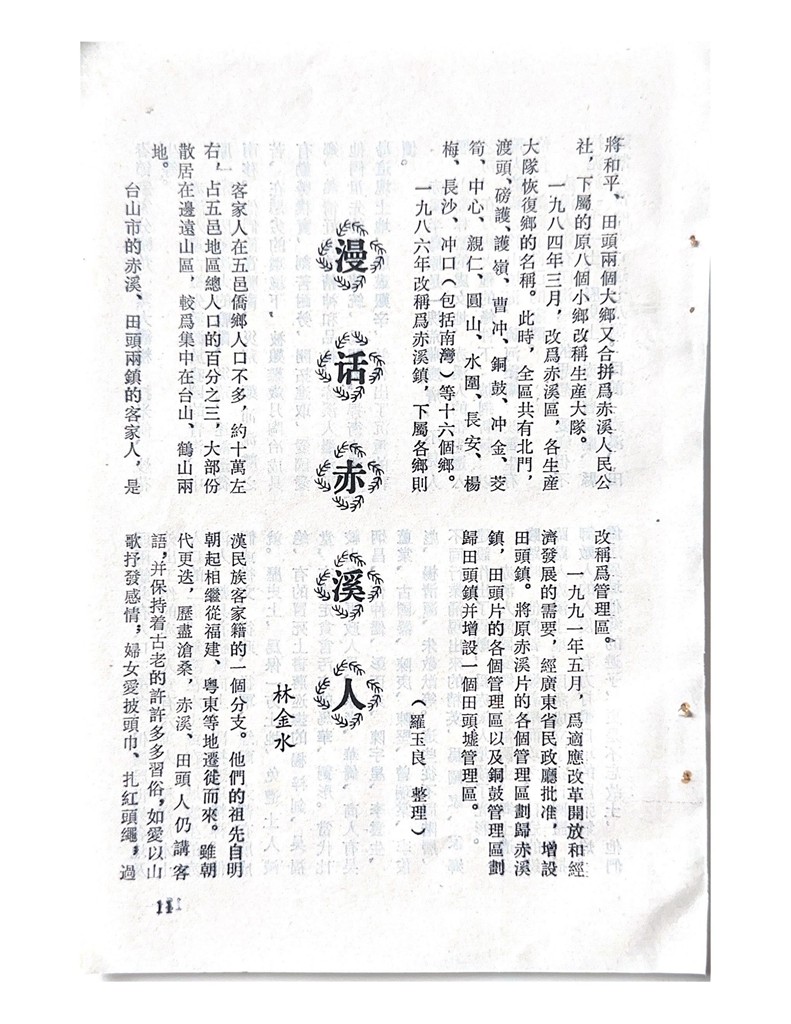 將和平、田頭兩個大鄉又合拼爲赤溪人民公
社，下屬的原八個小鄉改稱生産大隊。
一九八四年三月，改爲赤溪區，各生産
大隊恢復鄉的名稱。此時，全區共有北門，
渡頭、磅護、護嶺、曹冲、銅鼓、冲金、茭
筍、中心、親仁、圓山、水圍、長安、楊
梅、長沙、冲口（包括南灣）等十六個鄉。
一九八六年改稱爲赤溪鎮，下屬各鄉則
改稱爲管理區。
一九九一年五月，爲適應改革開放和經
濟發展的需要，經廣東省民政廳批准，增設
田頭鎮。將原赤溪片的各個管理區劃歸赤溪
鎮，田頭片的各個管理區以及銅鼓管理區劃
歸田頭鎮并增設一個田頭墟管理區。
（羅玉良 整理）
漫话赤溪人
林金水
客家人在五邑僑鄉人口不多，約十萬左
右，占五邑地區總人口的百分之三，大部份
散居在邊遠山區，較爲集中在台山、鶴山兩
地。
台山市的赤溪、田頭兩鎮的客家人，是
漢民族客家籍的一個分支。他們的祖先自明
朝起相繼從福建、粵東等地遷徙而來。雖朝
代更迭，歷盡滄桑，赤溪、田頭人仍講客
語，并保持着古老的許許多多習俗，如愛以山
歌抒發感情；婦女愛披頭巾、扎紅頭繩，過
11